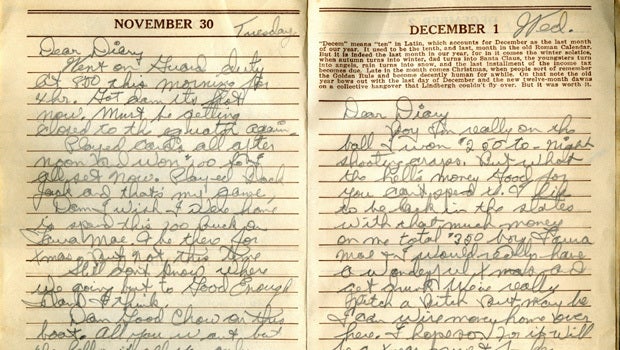 NOVEMBER 30 Tuesday
Dear Diary
Went on Guard duty
at 800 this morning for
4 hr. Hot dam its hot
now. Must be getting
closed to the equator again.
Played cards all after
noon & I won $100 &
all set now. Played Black
Jack and that's my game
Dam I wish I were home
to spend this 100 Buck on
Laura Mae & be there for
Xmas. But not this time
Still don't know where
we going but to Good Enough
Island I think.
Dam Good Chow on this
boat. All you want but
DECEMBER 1 Wed.
"Decem" means "ten" in Latin, which accounts for December as the last month
of our year. It used to be the tenth, and last, month in the old Roman Calendar.
But it is indeed the last month of our year, for in it comes the winter solstice,
when autumn turns into winter, dad turns into Santa Claus, the youngsters turn
into angels, rain turns into snow, and the last installment of the income tax
become due. Late in the month comes Christmas, when people sort of remember
the Golden Rule and become decently human for awhile. On that note the old
year bows out with the last day of December and the new twelve-month dawns
on a collective hangover that Lindbergh couldn't fly over. But it was worth it.
Dear Diary
Boy I'm really on the
ball I won $250 to-night
shooting craps. But what
the hell's money good for
you can't spend it. I'd like
to be back in the states
with that much money
on me total $350 boy. Laura
Mae & I would really have
a wonderful Xmas and
get drunk. We're really
pitch a bitch. But maybe
I can wire money home over
here. I hope so for it will
be a